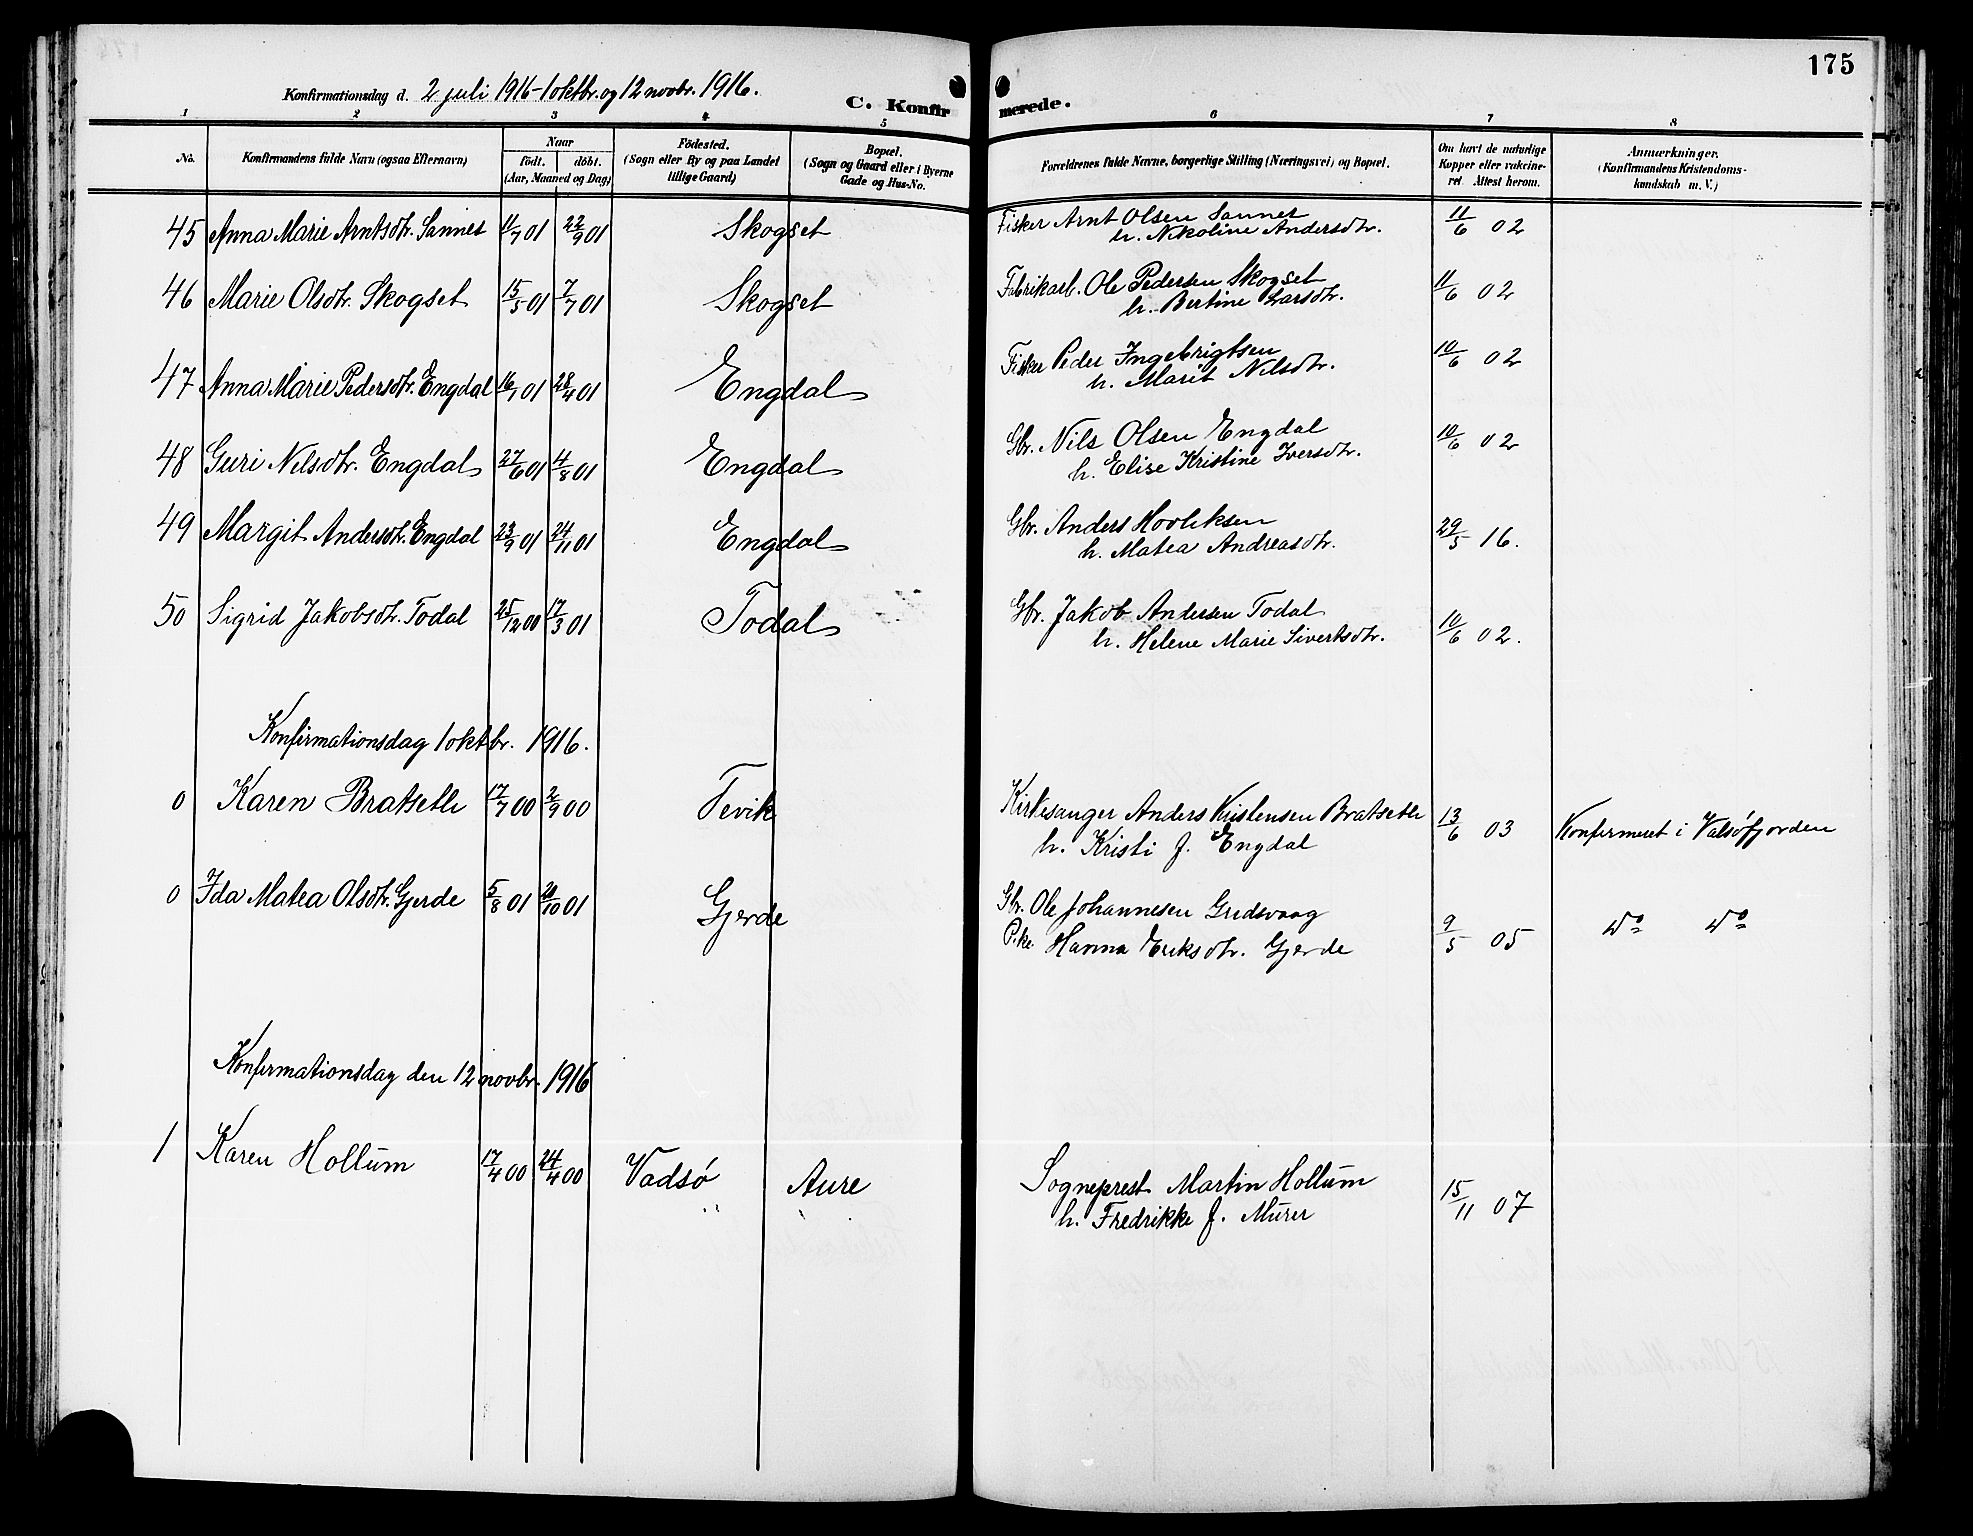 175
Konfirmationsdag d. 2 juli 1916 - 1 oktbr. og 12 novbr. 1916.
C. Konfirmerede.
1 2 3 4 5 6 7 8
No.
Konfirmandens fulde Navn (ogsaa Efternavn)
Naar
födt. döbt.
(Aar, Maaned og Dag)
Födested.
(Sogn eller By og paa Landet
tillige Gaard)
Bopæl.
(Sogn og Gaard eller i Byerne
Gade og Hus-No.
Forældrenes fulde Navne, borgerlige Stilling (Næringsvei) og Bopæl.
Om havt de naturlige
Kopper eller vakcine-
ret Attest herom.
Anmærkninger.
(Konfirmandens Kristendoms-
kundskab m. V.)
45 Anna Marie Arntsdtr. Sannes 11/7 01 22/9 01 Skogset Fisker Arnt Olsen Sannes 11/6 02
h. Nikoline Andersdtr.
46 Marie Olsdtr. Skogset 15/5 01 7/7 01 Skogset Fabrikarb. Ole Pedersen Skogset 11/6 02
h. Bertine Larsdtr.
47 Anna Marie Pedersdtr. Engdal 16/1 01 28/4 01 Engdal Fisker Peder Ingebrigtsen 10/6 02
h. Marit Nilsdtr.
48 Guri Nilsdtr. Engdal 27/6 01 4/8 01 Engdal Gbr. Nils Olsen Engdal 10/6 02
h. Elise Kristine Iversdtr.
49 Margit Andersdtr. Engdal 23/9 01 24/11 01 Engdal Gbr. Anders Hovliksen 29/5 16.
h. Matea Andreasdtr.
50 Sigrid Jakobsdtr. Todal 25/12 00 17/3 01 Todal Gbr. Jakob Andersen Todal 10/6 02.
h. Helene Marie Sivertsdtr.
Konfirmationsdag 1 oktbr. 1916.
0 Karen Bratseth 17/7 00 2/9 00 Tevik Kirkesanger Anders Kristensen Bratseth 13/6 03 Konfirmeret i Valsöfjorden
h. Kristi f. Engdal
0 Ida Matea Olsdtr. Gjerde 5/8 01 20/10 01 Gjerde Gbr. Ole Johannesen Gredsvaag 9/5 05 Do Do
Pike Hanna Eriksdtr. Gjerde
Konfirmationsdag den 12 novbr. 1916
1 Karen Hollum 17/4 00 24/4 00 Vadsø Aure Sogneprest Martin Hollum 15/11 07
h. Fredrikke f. Murer